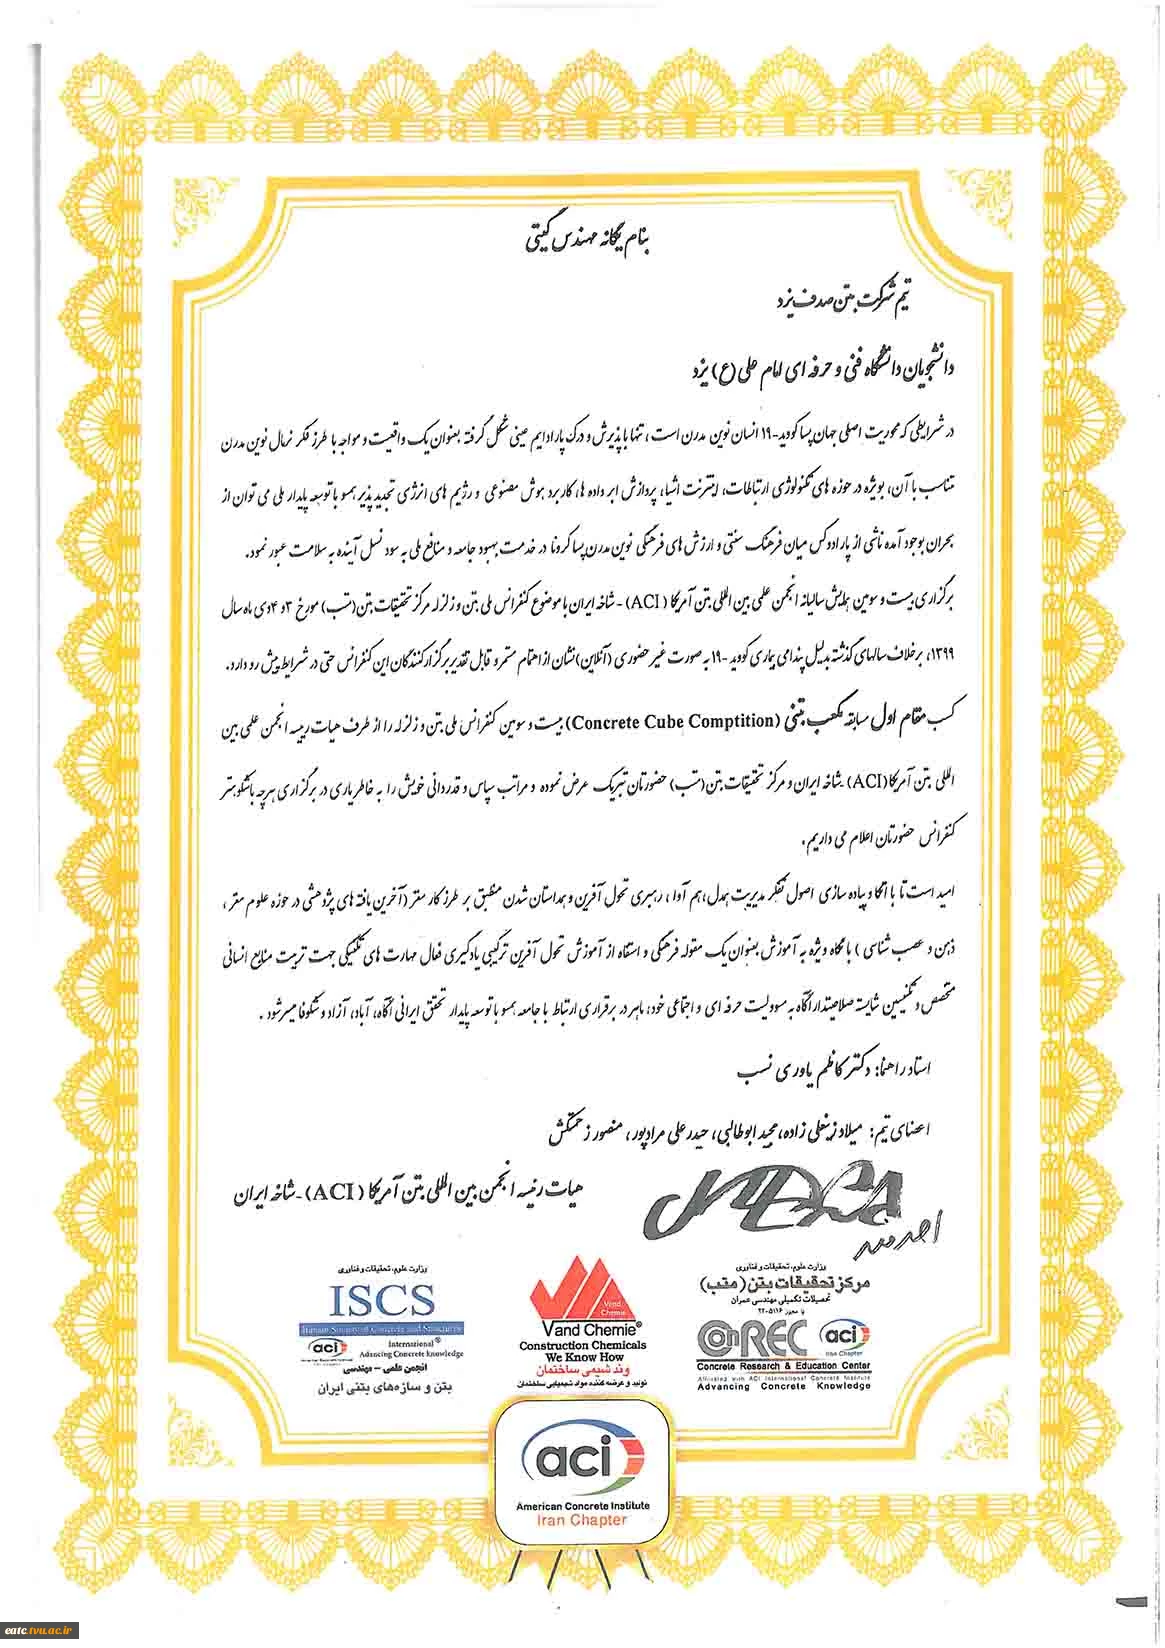 بنام یگانه مهندس گیتی
تیم شرکت بتن صدف یزد
دانشجویان دانشگاه فنی و حرفه ای امام علی (ع) یزد
در شرایطی که محوریت اصلی جهان پسا کووید-۱۹ انسان نوین مدرن است، تنها با پذیرش و درک پارادایم عینی شکل گرفته بعنوان یک واقعیت و مواجه با طرز فکر نرمال نوین مدرن
متناسب با آن، بویژه در حوزه های تکنولوژی ارتباطات، اینترنت اشیا، پردازش ابر داده ها، کاربرد هوش مصنوعی و رژیم های انرژی تجدید پذیر همسو با توسعه پایدار ملی می توان از
بحران بوجود آمده ناشی از پارادوکس میان فرهنگ سنتی و ارزش های فرهنگی نوین مدرن پسا کرونا در خدمت بهبود جامعه و منافع ملی به سود نسل آینده به سلامت عبور نمود.
برگزاری بیست و سومین همایش سالیانه انجمن علمی بین المللی بتن آمریکا (ACI) -شاخه ایران با موضوع کنفرانس ملی بتن و زلزله مرکز تحقیقات بتن(متب) مورخ ۳ و ۴ دی ماه سال
۱۳۹۹، بر خلاف سالهای گذشته بدلیل پندامی بیماری کووید -۱۹ به صورت غیر حضوری (آنلاین) نشان از اهتمام مستمر و قابل تقدیر برگزار کنندگان این کنفرانس حتی در شرایط پیش رو دارد.
کسب مقام اول مسابقه مکعب بتنی (Concrete Cube Comptition) بیست و سومین کنفرانس ملی بتن و زلزله را از طرف هیات رییسه انجمن علمی بین
المللی بتن آمریکا(ACI) -شاخه ایران و مرکز تحقیقات بتن(متب) حضورتان تبریک عرض نموده و مراتب سپاس و قدردانی خویش را به خاطر یاری در برگزاری هرچه باشکوهتر
کنفرانس حضورتان اعلام می داریم.
امید است تا با اتکا و پیاده سازی اصول تفکر مدیریت همدل، هم آوا، رهبری تحول آفرین و همداستان شدن منطبق بر طرز کار مغز (آخرین یافته های پژوهشی در حوزه علوم مغز،
ذهن و عصب شناسی) با نگاه ویژه به آموزش بعنوان یک مقوله فرهنگی و استفاه از آموزش تحول آفرین ترکیبی یادگیری فعال مهارت های تکنیکی جهت تربیت منابع انسانی
متخصص و تکنسین شایسته صلاحیتدار آگاه به مسوولیت حرفه ای و اجتماعی خود، ماهر در برقراری ارتباط با جامعه همسو با توسعه پایدار تحقق ایرانی آگاه، آباد، آزاد و شکوفا میسر شود.
استاد راهنما: دکتر کاظم یاوری نسب
اعضای تیم: میلاد زینعلی زاده، مجید ابوطالبی، حیدر علی مرادپور، منصور زحمتکش
هیات رئیسه انجمن بین المللی بتن آمریکا (ACI) -شاخه ایران
وزارت علوم، تحقیقات و فناوری
مرکز تحقیقات بتن (متب)
تحصیلات تکمیلی مهندسی عمران
با مجوز ۵۱۱۶-۲۲
ConREC aci
Iran Chapter
Concrete Research & Education Center
Affiliated with ACI International Concrete Institute
Advancing Concrete Knowledge
Vand Chemie
Vand Chemie®
Construction Chemicals
We Know How
وند شیمی ساختمان
تولید و عرضه کننده مواد شیمیایی ساختمان
وزارت علوم، تحقیقات و فناوری
ISCS
Iranian Society of Concrete and Structures
aci International®
Advancing Concrete knowledge
انجمن علمی - مهندسی
بتن و سازه‌های بتنی ایران
aci
American Concrete Institute
Iran Chapter
eatc.tvu.ac.ir